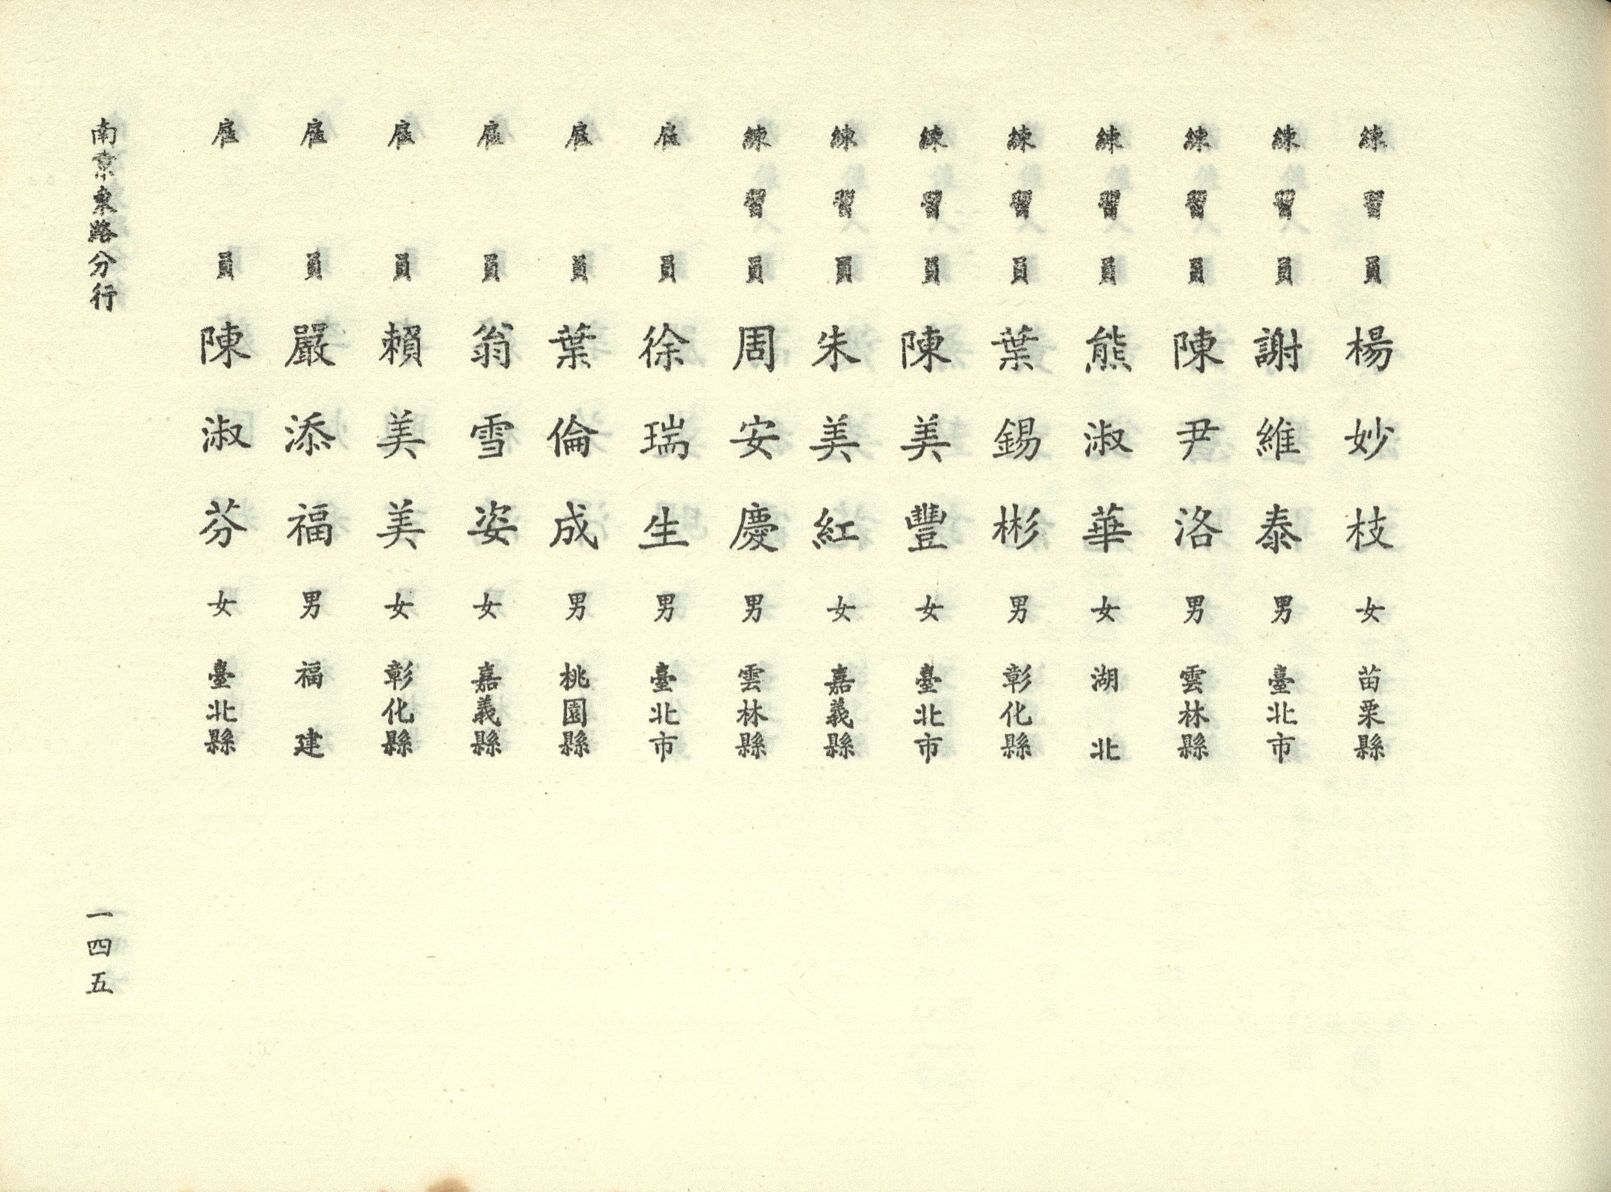 練習員 楊妙枝 女 苗栗縣
練習員 謝維泰 男 臺北市
練習員 陳尹洛 男 雲林縣
練習員 熊淑華 女 湖北
練習員 葉錫彬 男 彰化縣
練習員 陳美豐 女 臺北市
練習員 朱美紅 女 嘉義縣
練習員 周安慶 男 雲林縣
雇員 徐瑞生 男 臺北市
雇員 葉倫成 男 桃園縣
雇員 翁雪姿 女 嘉義縣
雇員 賴美美 女 彰化縣
雇員 嚴添福 男 福建
雇員 陳淑芬 女 臺北縣
南京東路分行
一四五